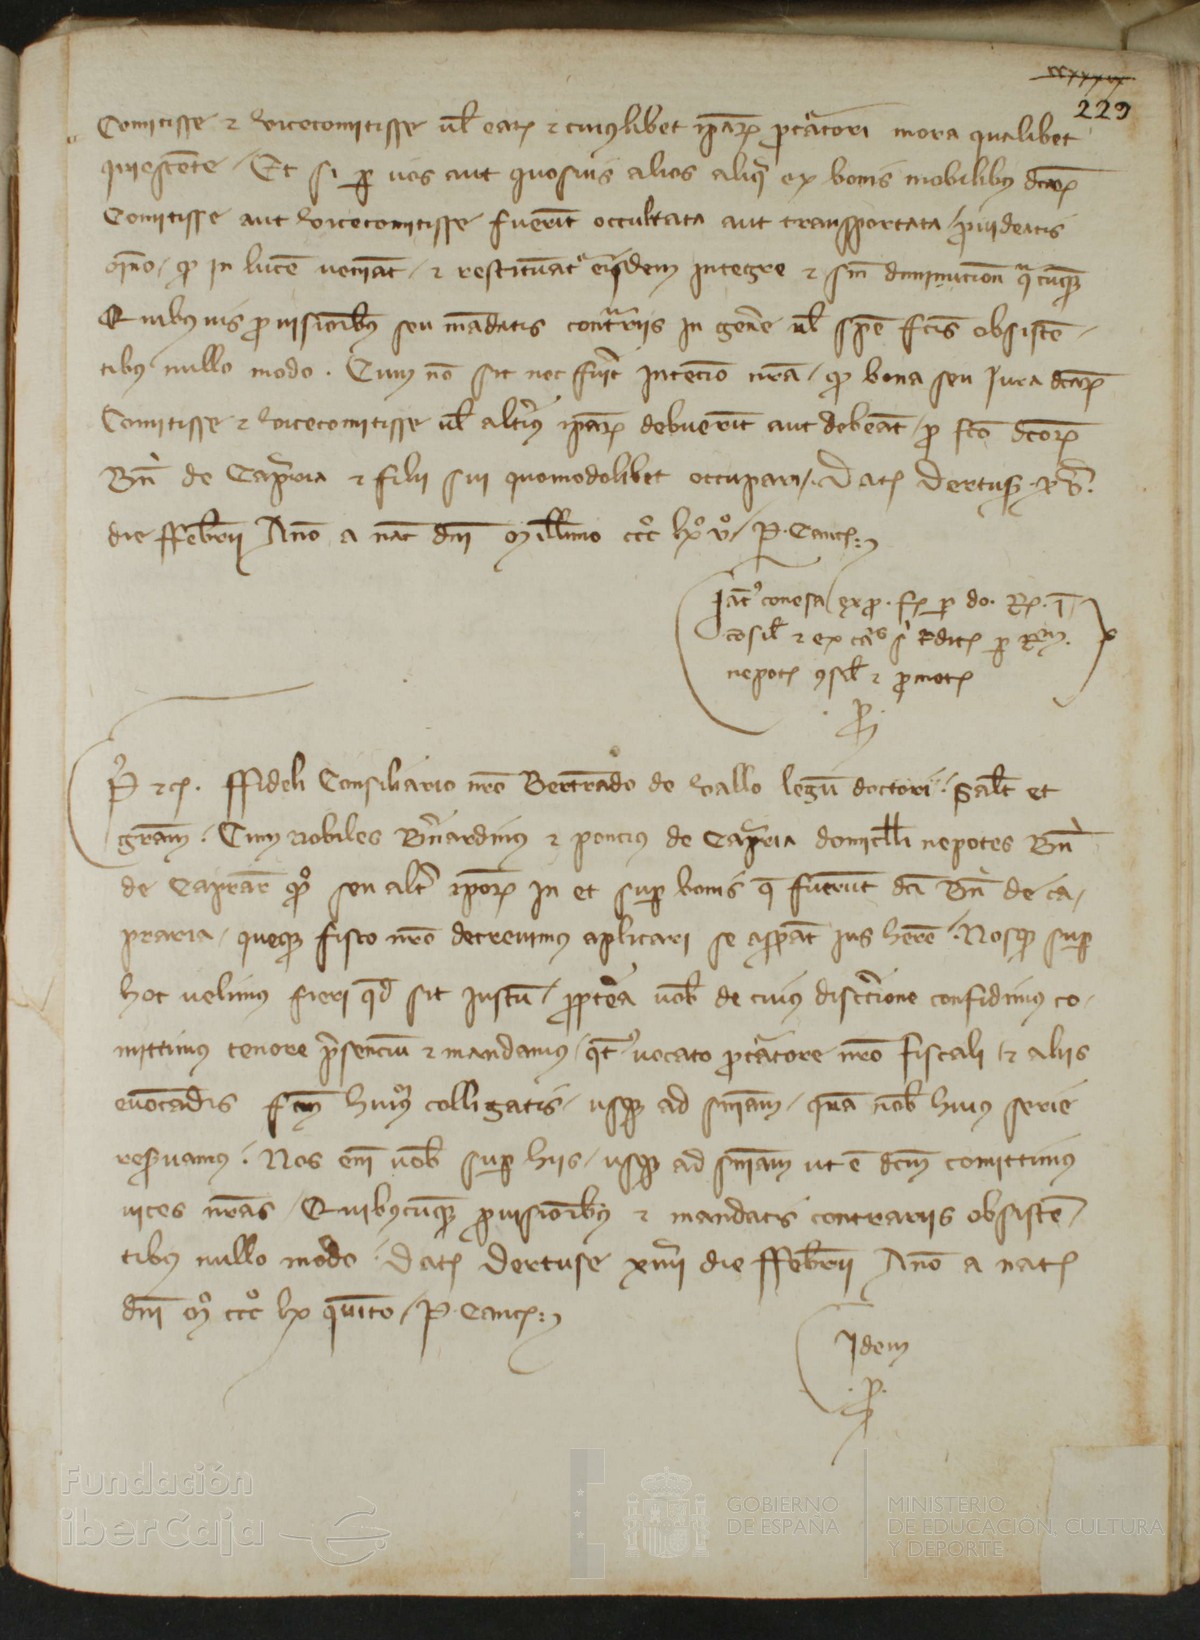 ccxxxix
229
Comitisse et vicecomitisse vel earum et cuiuslibet ipsarum procuratori mora qualibet
quiescente / Et si per vos aut quosvis alios aliqua ex bonis mobilibus dictarum
Comitisse aut vicecomitisse fuerint occultata aut transportata / provideatis
omnino / quod in lucem veniant / et restituantur eisdem integre et sine diminucione quacumque
Quibusvis provisionibus seu mandatis contrariis in genere vel specie factis obsisten-
tibus nullo modo . Cum non sit nec fuerit intencio nostra / quod bona seu Jura dictarum
Comitisse et vicecomitisse vel alterius ipsarum debuerint aut debeant / pro facto dictorum
Bn de Capraria et filii sui quomodolibet occupari / . Dat Dertuse . xv .
die ffebruarii Anno a nat dni Millesimo ccc lx v / P . Canc :
Jac conesa ex pro . f per do . R . i
consil et ex ca per R
nepot consil et promot
p
P etc . ffideli Consiliario nostro Bertrando de vallo legum doctori . Salutem et
gratiam . Cum Nobiles Bernardinus et poncius de Capraria domicelli nepotes Bn
de Caprar seu alter ipsorum in et super bonis que fuerunt dicti Bn de ca-
praria / queque fisco nostro decrevimus aplicari se asserant ius habere . Nosque super
hoc velimus fieri quod sit justum / propterea vobis de cuius discrecione confidimus co-
mittimus tenore presencium et mandamus / quatenus vocato procuratore nostro fiscali et aliis
evocandis factum huiusmodi colligatis / usque ad sentenciam / quam nobis huius serie
reservamus . Nos enim vobis super hiis / usque ad sentenciam ut est dictum comittimus
vices nostras / Quibuscumque provisionibus et mandatis contrariis obsisten-
tibus nullo modo . Dat Dertuse xiiii die ffebruarii Anno a nat
dni M ccc lx quinto / P . Canc :
Idem
. p .
Fundación
iberCaja
GOBIERNO
DE ESPAÑA
MINISTERIO
DE EDUCACIÓN, CULTURA
Y DEPORTE